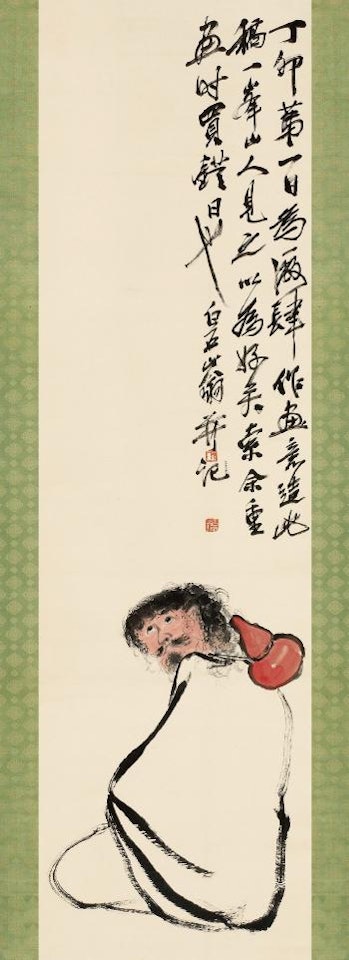 丁卯第一日為肆作畫意造此
稿一峯山人見之以為好矣索余重
畫時買鐙日也
白石山翁并記